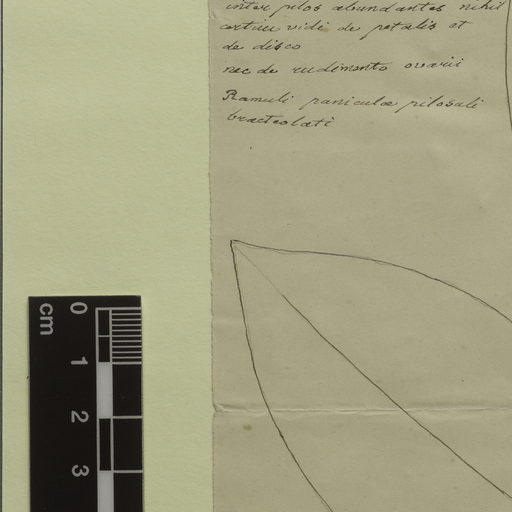 inter pilos abundantes nihil
certius vidi de petalis et
de disco
nec de rudimento ovarii
Ramuli paniculae pilosuli
bracteolati
cm
0
1
2
3